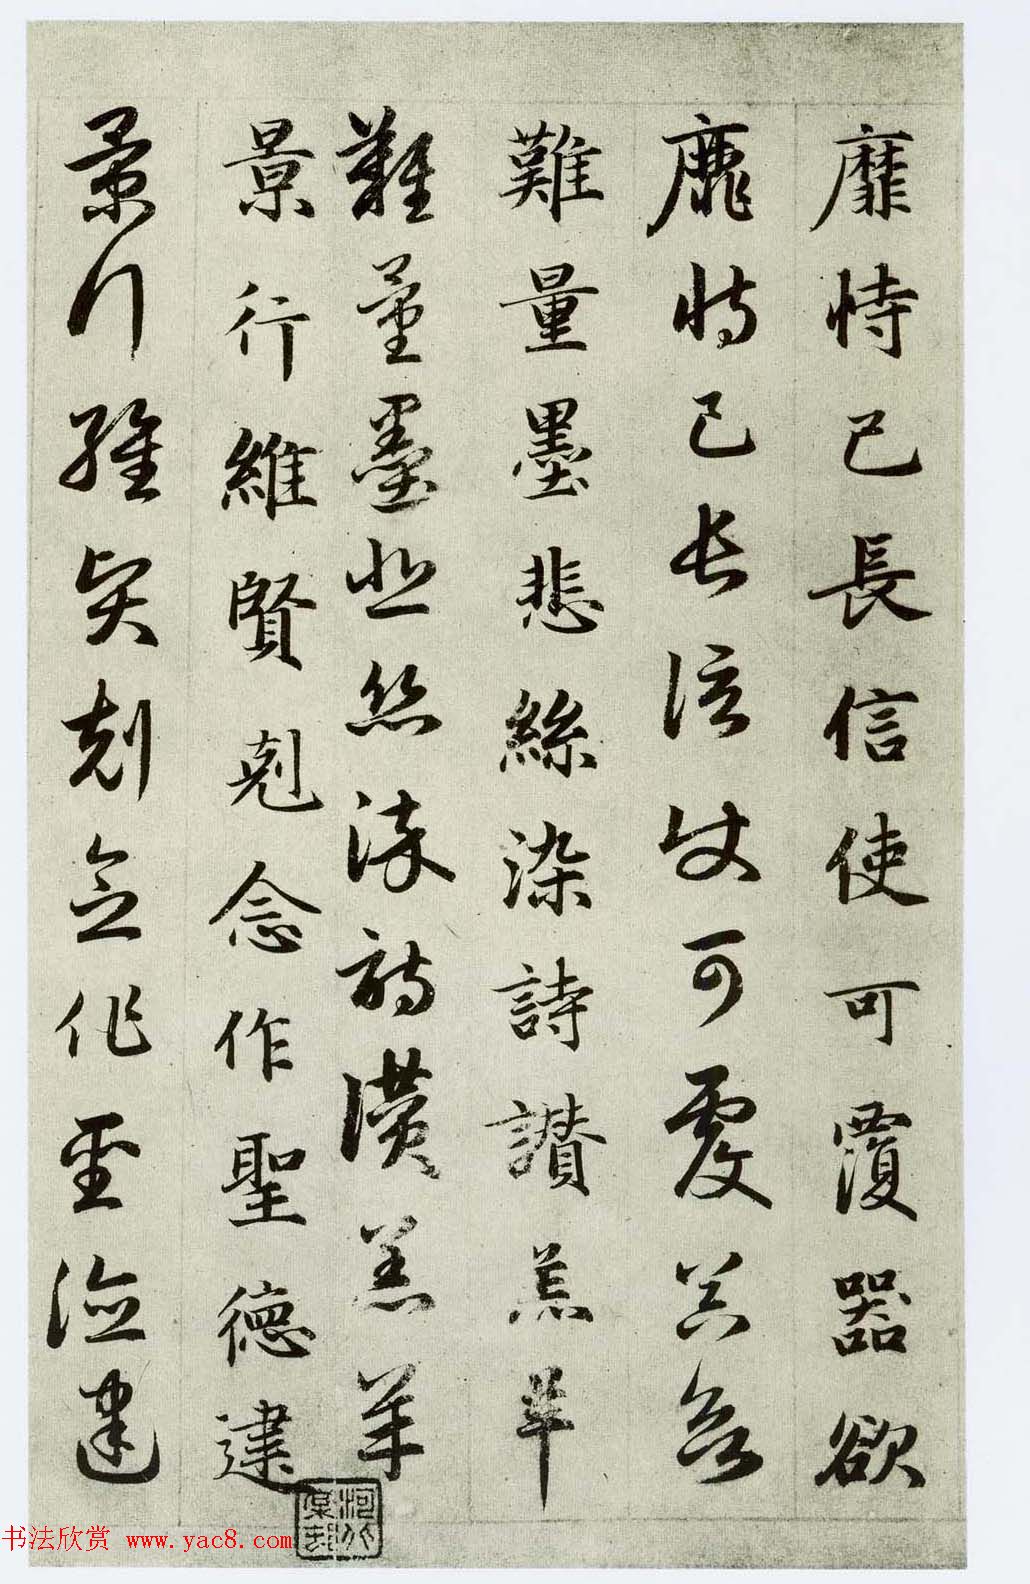 靡恃己長信使可覆器欲
靡恃己長信使可覆器欲
難量墨悲絲染詩讃羔羊
難量墨悲絲染詩讃羔羊
景行維賢剋念作聖德建
景行維賢剋念作聖德建
书法欣赏 www.yac8.com